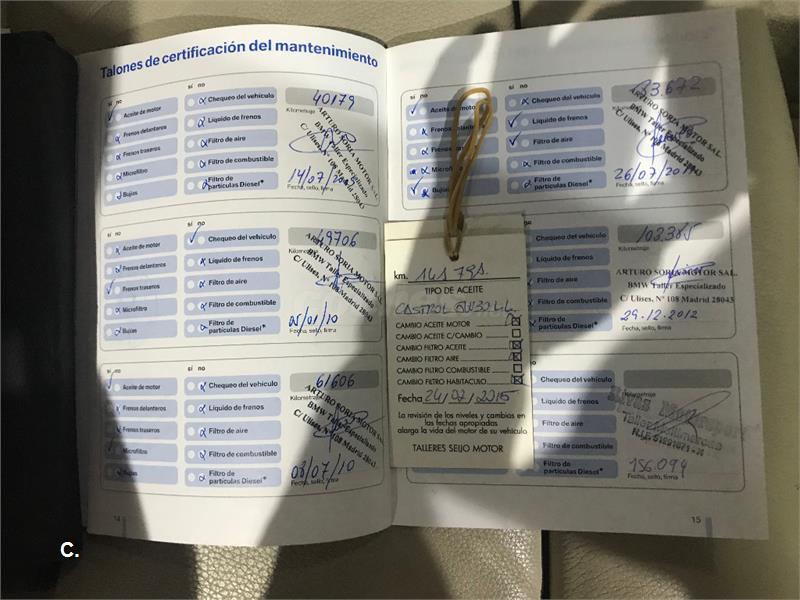 Talones de certificación del mantenimiento
sí no
Aceite de motor
Frenos delanteros
Frenos traseros
Microfiltro
Bujías
sí no
Chequeo del vehículo
Líquido de frenos
Filtro de aire
Filtro de combustible
Filtro de
partículas Diesel*
40179
Kilometraje
ARTURO SORIA MOTOR SAL.
BMW Taller Especializado
C/ Ulises, Nº 108 Madrid 28043
14/07/2009
Fecha, sello, firma
sí no
Aceite de motor
Frenos delanteros
Frenos traseros
Microfiltro
Bujías
sí no
Chequeo del vehículo
Líquido de frenos
Filtro de aire
Filtro de combustible
Filtro de
partículas Diesel*
49706
ARTURO SORIA MOTOR SAL.
BMW Taller Especializado
C/ Ulises, Nº 108 Madrid 28043
05/01/10
Fecha, sello, firma
sí no
Aceite de motor
Frenos delanteros
Frenos traseros
Microfiltro
Bujías
sí no
Chequeo del vehículo
Líquido de frenos
Filtro de aire
Filtro de combustible
Filtro de
partículas Diesel*
61606
Kilometraje
ARTURO SORIA MOTOR SAL.
BMW Taller Especializado
C/ Ulises, Nº 108 Madrid 28043
08/07/10
Fecha, sello, firma
14
sí no
Aceite de motor
Frenos
Frenos
Bujías
sí no
Chequeo del vehículo
Líquido de frenos
Filtro de aire
Filtro de combustible
Filtro de
partículas Diesel*
83.672
Kilometraje
ARTURO SORIA MOTOR SAL.
BMW Taller Especializado
C/ Ulises, Nº 108 Madrid 28043
26/07/2011
Fecha, sello, firma
Chequeo del vehículo
Líquido de frenos
Filtro de aire
Filtro de combustible
Filtro de
partículas Diesel*
103.385
Kilometraje
ARTURO SORIA MOTOR SAL.
BMW Taller Especializado
C/ Ulises, Nº 108 Madrid 28043
29.12.2012
Fecha, sello, firma
no
Chequeo del vehículo
Líquido de frenos
Filtro de aire
Filtro de combustible
Filtro de
partículas Diesel*
Kilometraje
156.094
Fecha, sello, firma
15
km. 141791
TIPO DE ACEITE
CASTROL
CAMBIO ACEITE MOTOR
CAMBIO ACEITE C/CAMBIO
CAMBIO FILTRO ACEITE
CAMBIO FILTRO AIRE
CAMBIO FILTRO COMBUSTIBLE
CAMBIO FILTRO HABITACULO
Fecha 24/02/2015
La revisión de los niveles y cambios en
las fechas apropiadas
alarga la vida del motor de su vehículo
TALLERES SEIJO MOTOR
C.